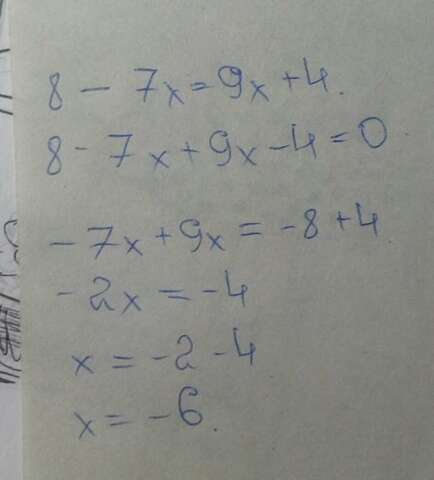 8 - 7x = 9x + 4.
8 - 7x + 9x - 4 = 0
- 7x + 9x = -8 + 4
- 2x = -4
x = -2 - 4
x = -6.